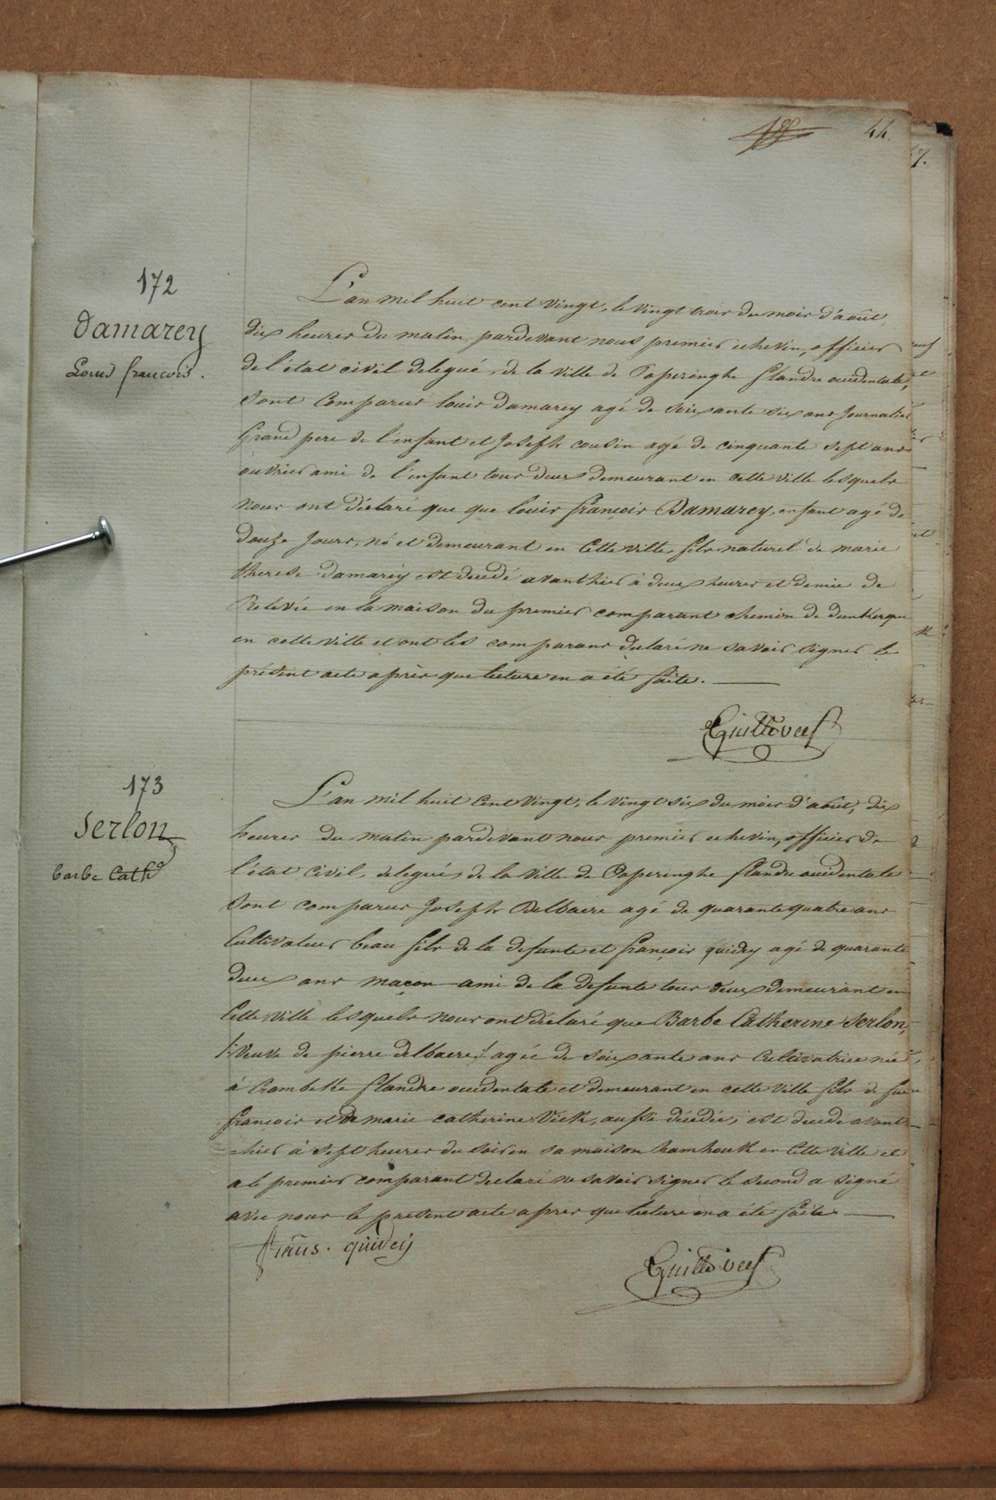 44.
7.
172
Damarey
Louis françois.
L'an mil huit cent vingt, le vingt trois du mois d'août,
dix heures du matin, pardevant nous premier echevin, officier
de l'état civil delegué, de la ville de Poperinghe flandre occidentale,
sont comparus louis Damarey agé de soixante six ans journalier
Grand pere de l'enfant et Joseph cousin agé de cinquante sept ans
ouvrier ami de l'enfant tous deux demeurant en cette ville lesquels
nous ont déclaré que que louis françois Damarey, enfant agé de
douze jours, né et demeurant en cette ville, fils naturel de marie
therese Damarey est decedé avanthier à deux heures et demie de
Relevée en la maison du premier comparant chemin de dunkerque
en cette ville et ont les comparans declaré ne savoir signer le
présent acte après que lecture en a été faite.
173
Serlon
barbe Cathe
L'an mil huit cent vingt, le vingt six du mois d'août, dix
heures du matin pardevant nous premier echevin, officier de
l'état civil, delegué, de la ville de Poperinghe flandre occidentale
sont comparus Joseph Delbaere agé de quarante quatre ans
Cultivateur beau fils de la defunte et françois quidey agé de quarante
deux ans maçon ami de la defunte tous deux demeurant en
cette ville lesquels nous ont déclaré que Barbe Catherine Serlon,
veuve de pierre delbaere, agée de soixante ans Cultivatrice née
à flandre occidentale et demeurant en cette ville fils de feu
françois et de marie catherine Vick, aussi décédée, est decedé avant
hier à sept heures du soir en sa maison en cette ville et
a le premier comparant declaré ne savoir signer le second a signé
avec nous le present acte apres que lecture en a été faite
frans. quidey